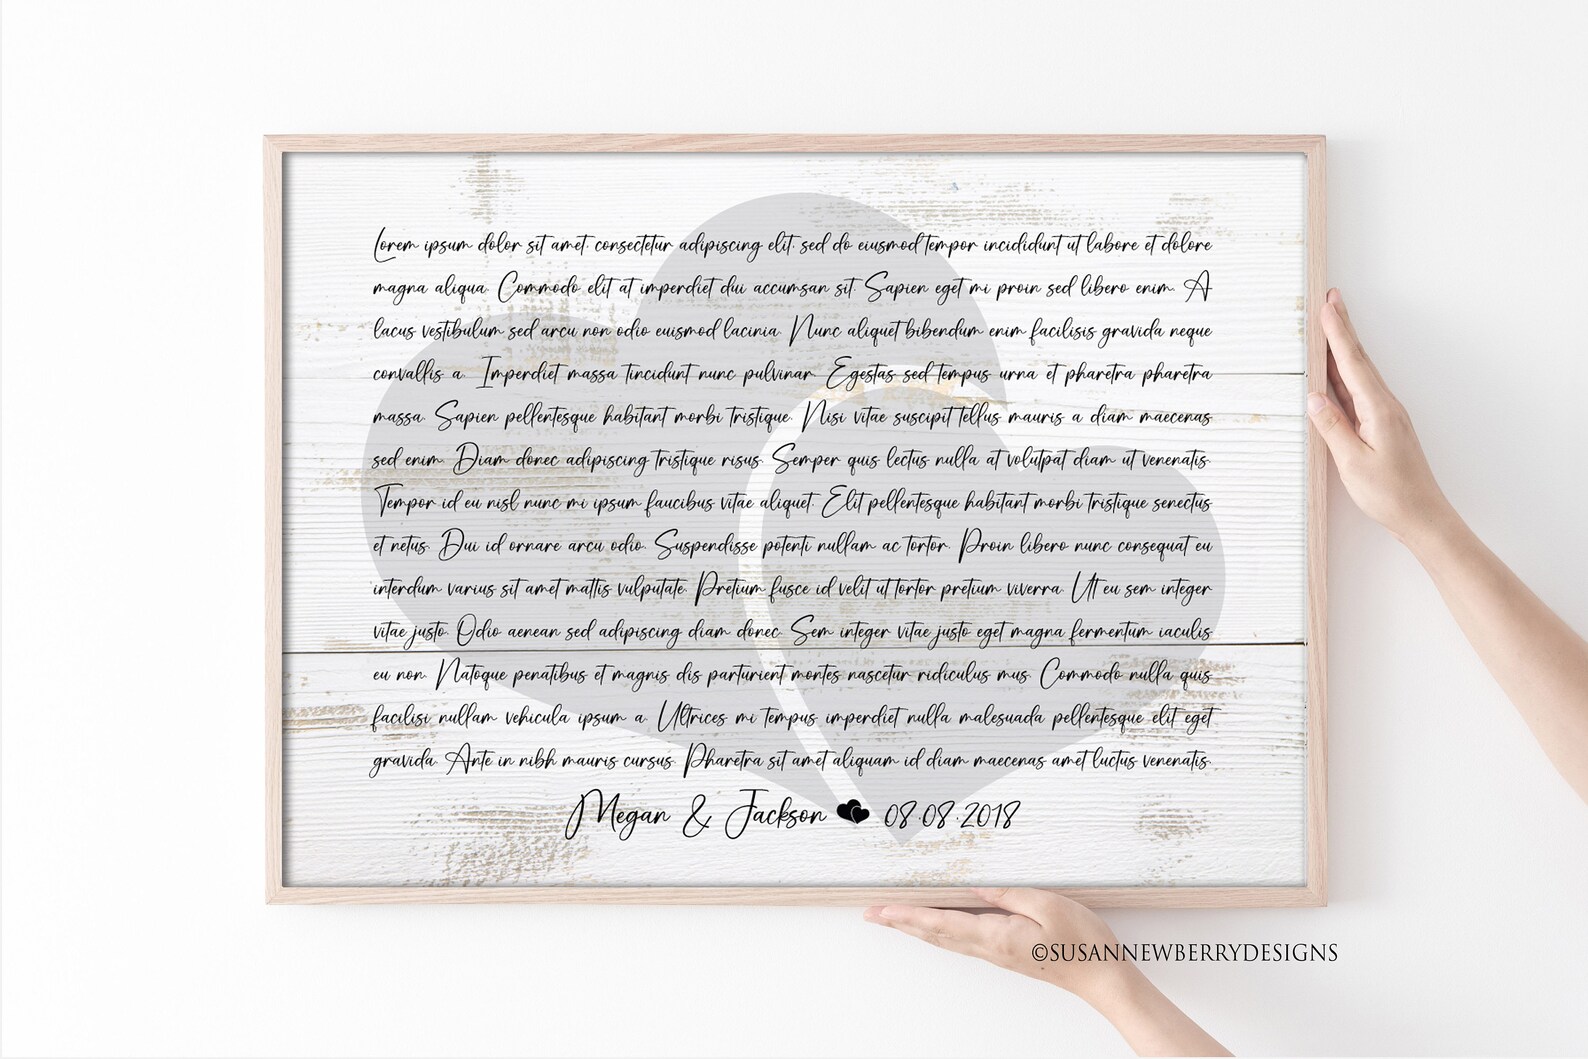 Lorem ipsum dolor sit amet, consectetur adipiscing elit, sed do eiusmod tempor incididunt ut labore et dolore
magna aliqua. Commodo elit at imperdiet dui accumsan sit. Sapien eget mi proin sed libero enim. A
lacus vestibulum sed arcu non odio euismod lacinia. Nunc aliquet bibendum enim facilisis gravida neque
convallis a. Imperdiet massa tincidunt nunc pulvinar. Egestas sed tempus urna et pharetra pharetra
massa. Sapien pellentesque habitant morbi tristique. Nisi vitae suscipit tellus mauris a diam maecenas
sed enim. Diam donec adipiscing tristique risus. Semper quis lectus nulla at volutpat diam ut venenatis.
Tempor id eu nisl nunc mi ipsum faucibus vitae aliquet. Elit pellentesque habitant morbi tristique senectus
et netus. Dui id ornare arcu odio. Suspendisse potenti nullam ac tortor. Proin libero nunc consequat eu
interdum varius sit amet mattis vulputate. Pretium fusce id velit ut tortor pretium viverra. Ut eu sem integer
vitae justo. Odio aenean sed adipiscing diam donec. Sem integer vitae justo eget magna fermentum iaculis
eu non. Natoque penatibus et magnis dis parturient montes nascetur ridiculus mus. Commodo nulla quis
facilisi nullam vehicula ipsum a. Ultrices mi tempus imperdiet nulla malesuada pellentesque elit eget
gravida. Ante in nibh mauris cursus. Pharetra sit amet aliquam id diam maecenas amet luctus venenatis.
Megan & Jackson 08.08.2018
©SUSANNEWBERRYDESIGNS